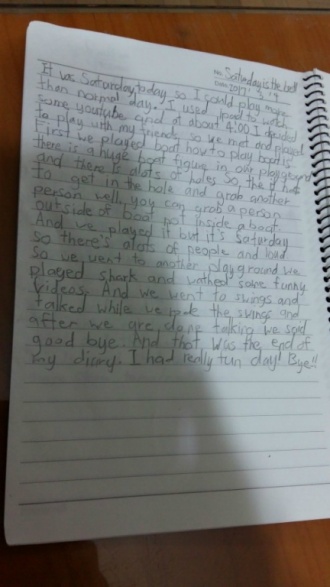 Saturday is the best
Date. 2017.
It was Saturday today so I could play more
than normal day. I used ipad to watch
some youtube and at about 4:00 I decided
to play with my friends, so we met and played
First we played boat how to play boat is
there is a huge boat figure in our playground
and there is alots of holes so the it has
to get in the hole and grab another
person well, you can grab a person
outside of boat not inside a boat
And we played it but it's Saturday
So there's alots of people and loud
So we went to another playground we
played shark and wathed some funny
Videos. And we went to swings and
talked while we the swings and
after we are done talking we said
good bye. And that, was the end of
my diary. I had really fun day! Bye!!